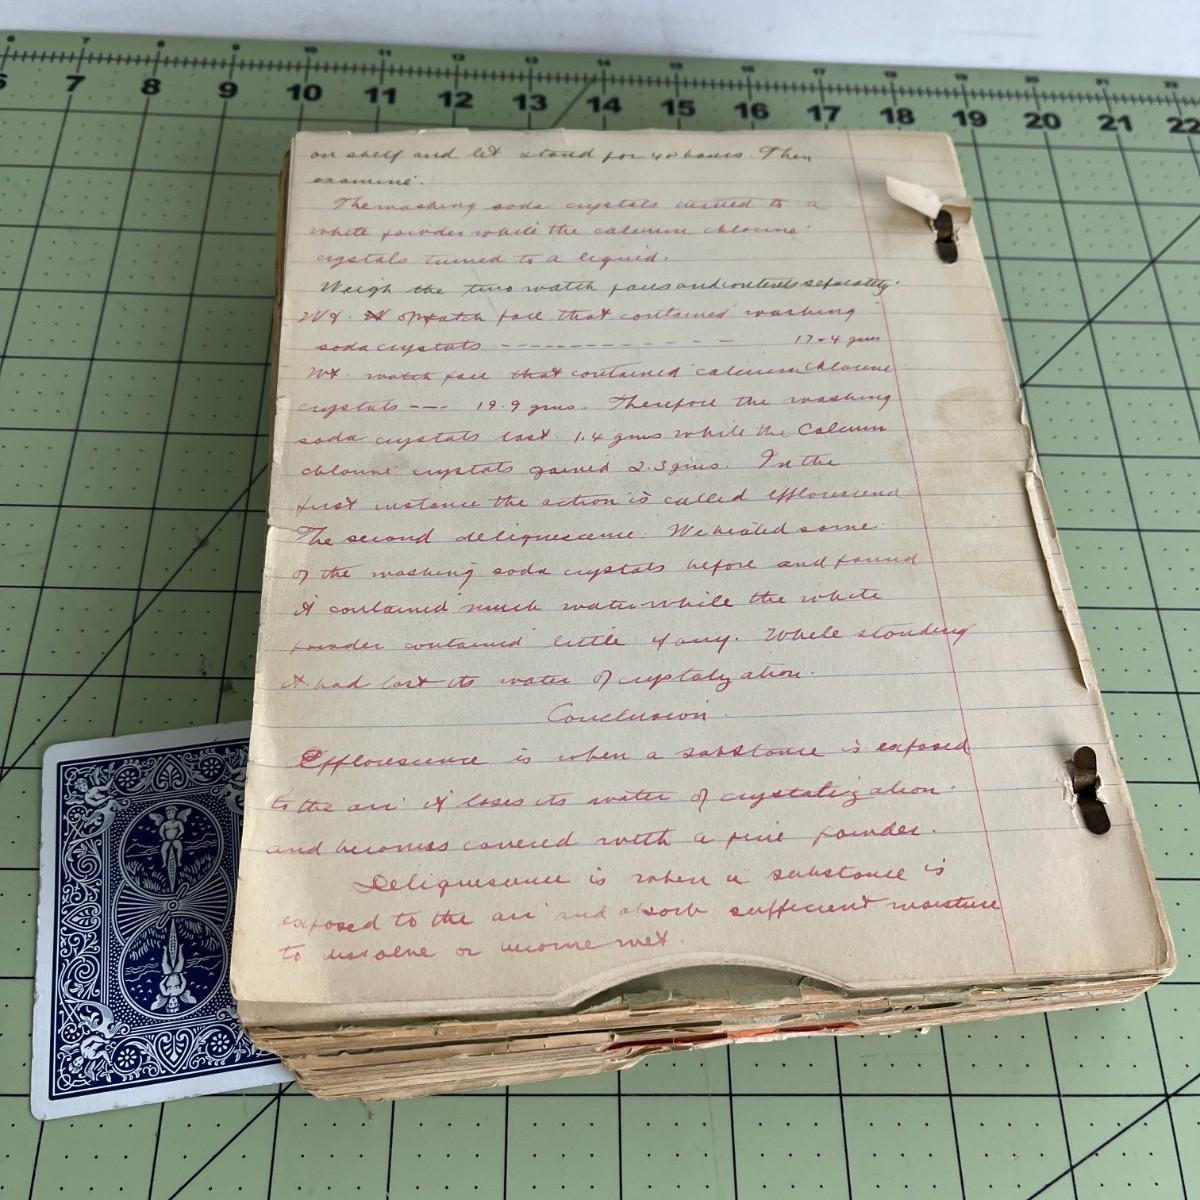 6 7 8 9 10 11 12 13 14 15 16 17 18 19 20 21 22
6 7 8 9 10 11 12 13 14 15 16 17 18 19 20 21 22
on shelf and let stand for 48 hours. Then
examine.
The washing soda crystals turned to a
white powder while the calcium chlorine
crystals turned to a liquid.
Weigh the two watch faces and contents separately.
Wt. of watch face that contained washing
soda crystals ------------ 17.4 gms
Wt. watch face that contained calcium chlorine
crystals --- 19.9 gms. Therefore the washing
soda crystals lost 1.4 gms while the Calcium
chlorine crystals gained 2.3 gms. In the
first instance the action is called efflorescence
The second deliquescence. We heated some
of the washing soda crystals before and found
it contained much water while the white
powder contained little if any. While standing
it had lost its water of crystalization.
Conclusion.
Efflorescence is when a substance is exposed
to the air it loses its water of crystalization.
and becomes covered with a fine powder.
Deliquescence is when a substance is
exposed to the air and absorb sufficient moisture
to dissolve or become wet.